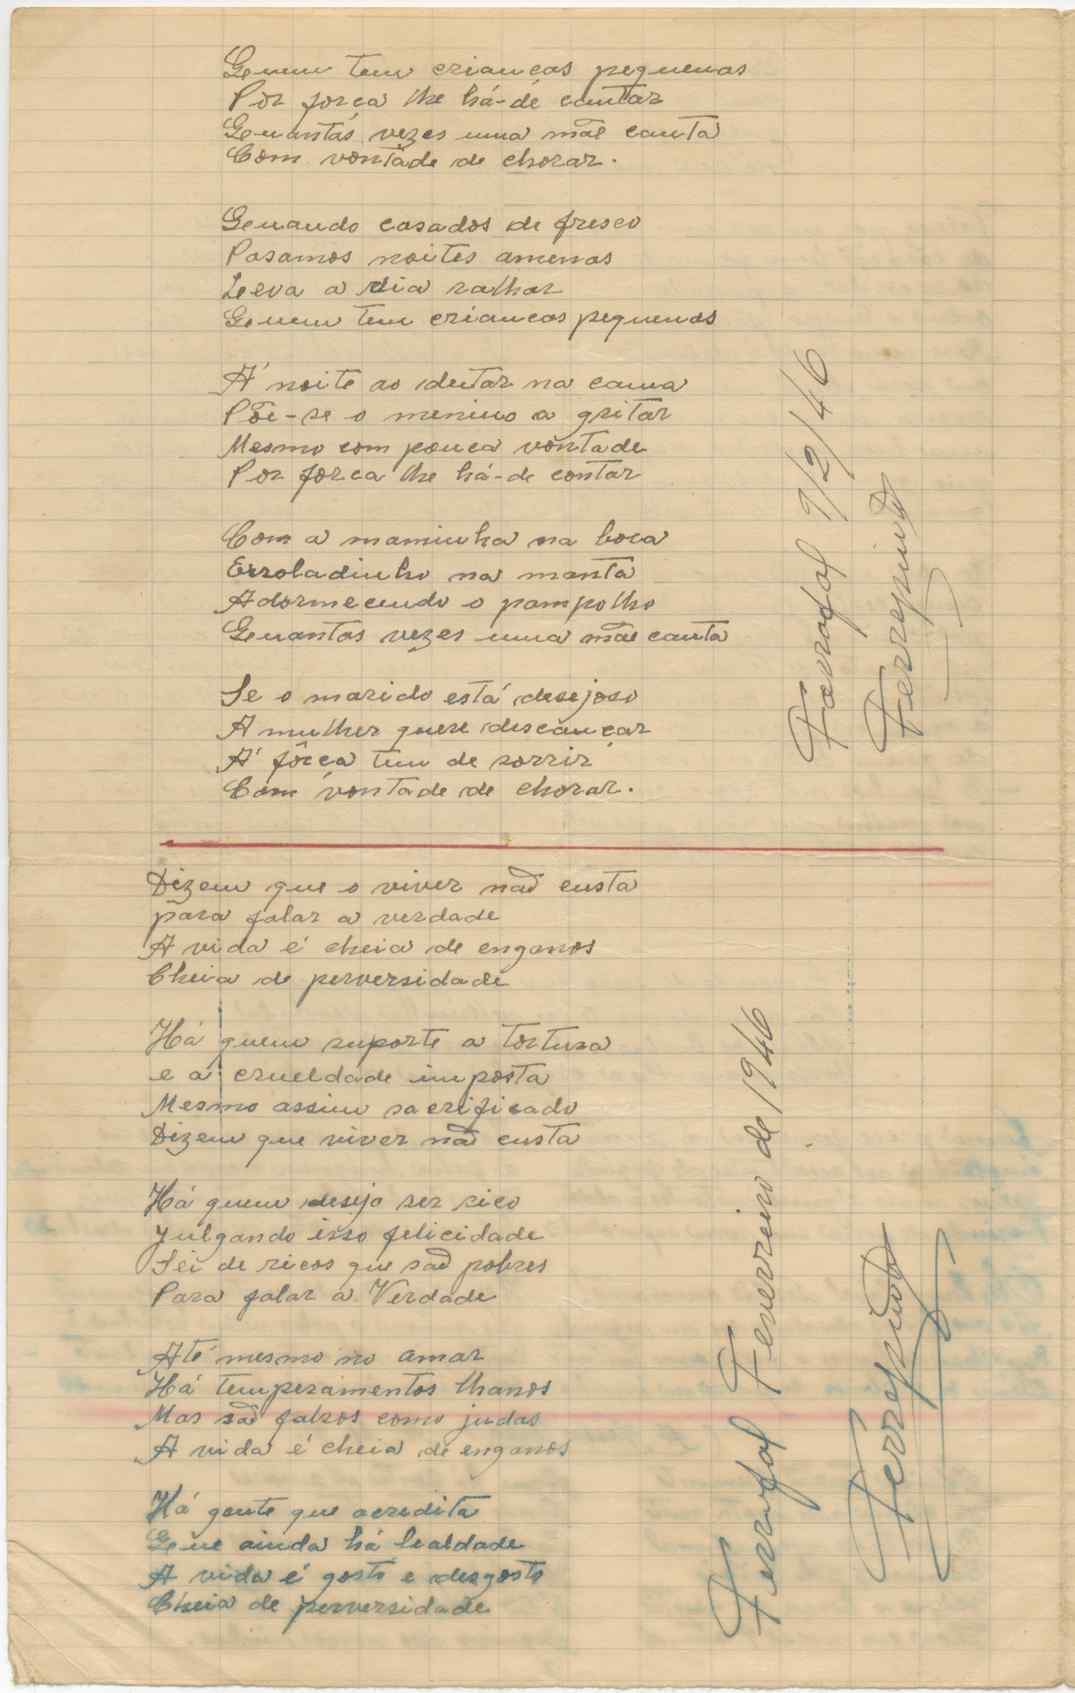 Quem tem crianças pequenas
Por força lhe há-de cantar
Quantas vezes uma mãe canta
Com vontade de chorar.
Quando casados de fresco
Pasamos noites amenas
Leva a dia ralhar
Quem tem crianças pequenas
Á noite ao deitar na cama
Põe-se o menino a gritar
Mesmo com pouca vontade
Por força lhe há-de contar
Com a maminha na boca
Enroladinho na manta
Adormecendo o pampolho
Quantas vezes uma mãe canta
Se o marido está desejoso
A mulher quere descançar
Á fôrça tem de sorrir
Com vontade de chorar.
9/2/46
Ferrepinto
Dizem que o viver não custa
para falar a verdade
A vida é cheia de enganos
Cheia de perversidade
Há quem suporte a tortura
e a crueldade imposta
Mesmo assim sacrificado
Dizem que viver não custa
Há quem deseja ser rico
Julgando isso felicidade
Sei de ricos que são pobres
Para falar a Verdade
Até mesmo no amar
Há temperamentos lhanos
Mas são falsos como judas
A vida é cheia de enganos
Há gente que acredita
Que ainda há lealdade
A vida é gosto e desgosto
Cheia de perversidade
Fevereiro de 1946
Ferrepinto